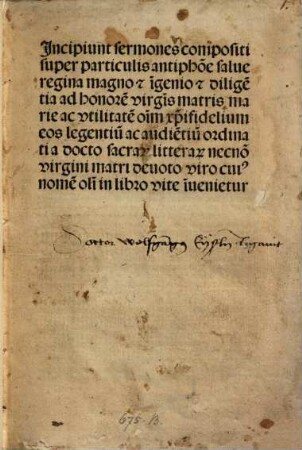 Incipiunt sermones compositi
super particulis antiphōe salue
regina magno ⁊ īgenio ⁊ diligē
tia ad honorē virgīs matris ma
rie ac vtilitatē oīm xp̄ifidelium
eos legentiū ac audiētiū ordina
ti a docto sacraꝝ litteraꝝ necnō
virgini matri deuoto viro cuiꝰ
nomē oīı in libro vite īuenietur
Doctor Wolfgang
675-B.